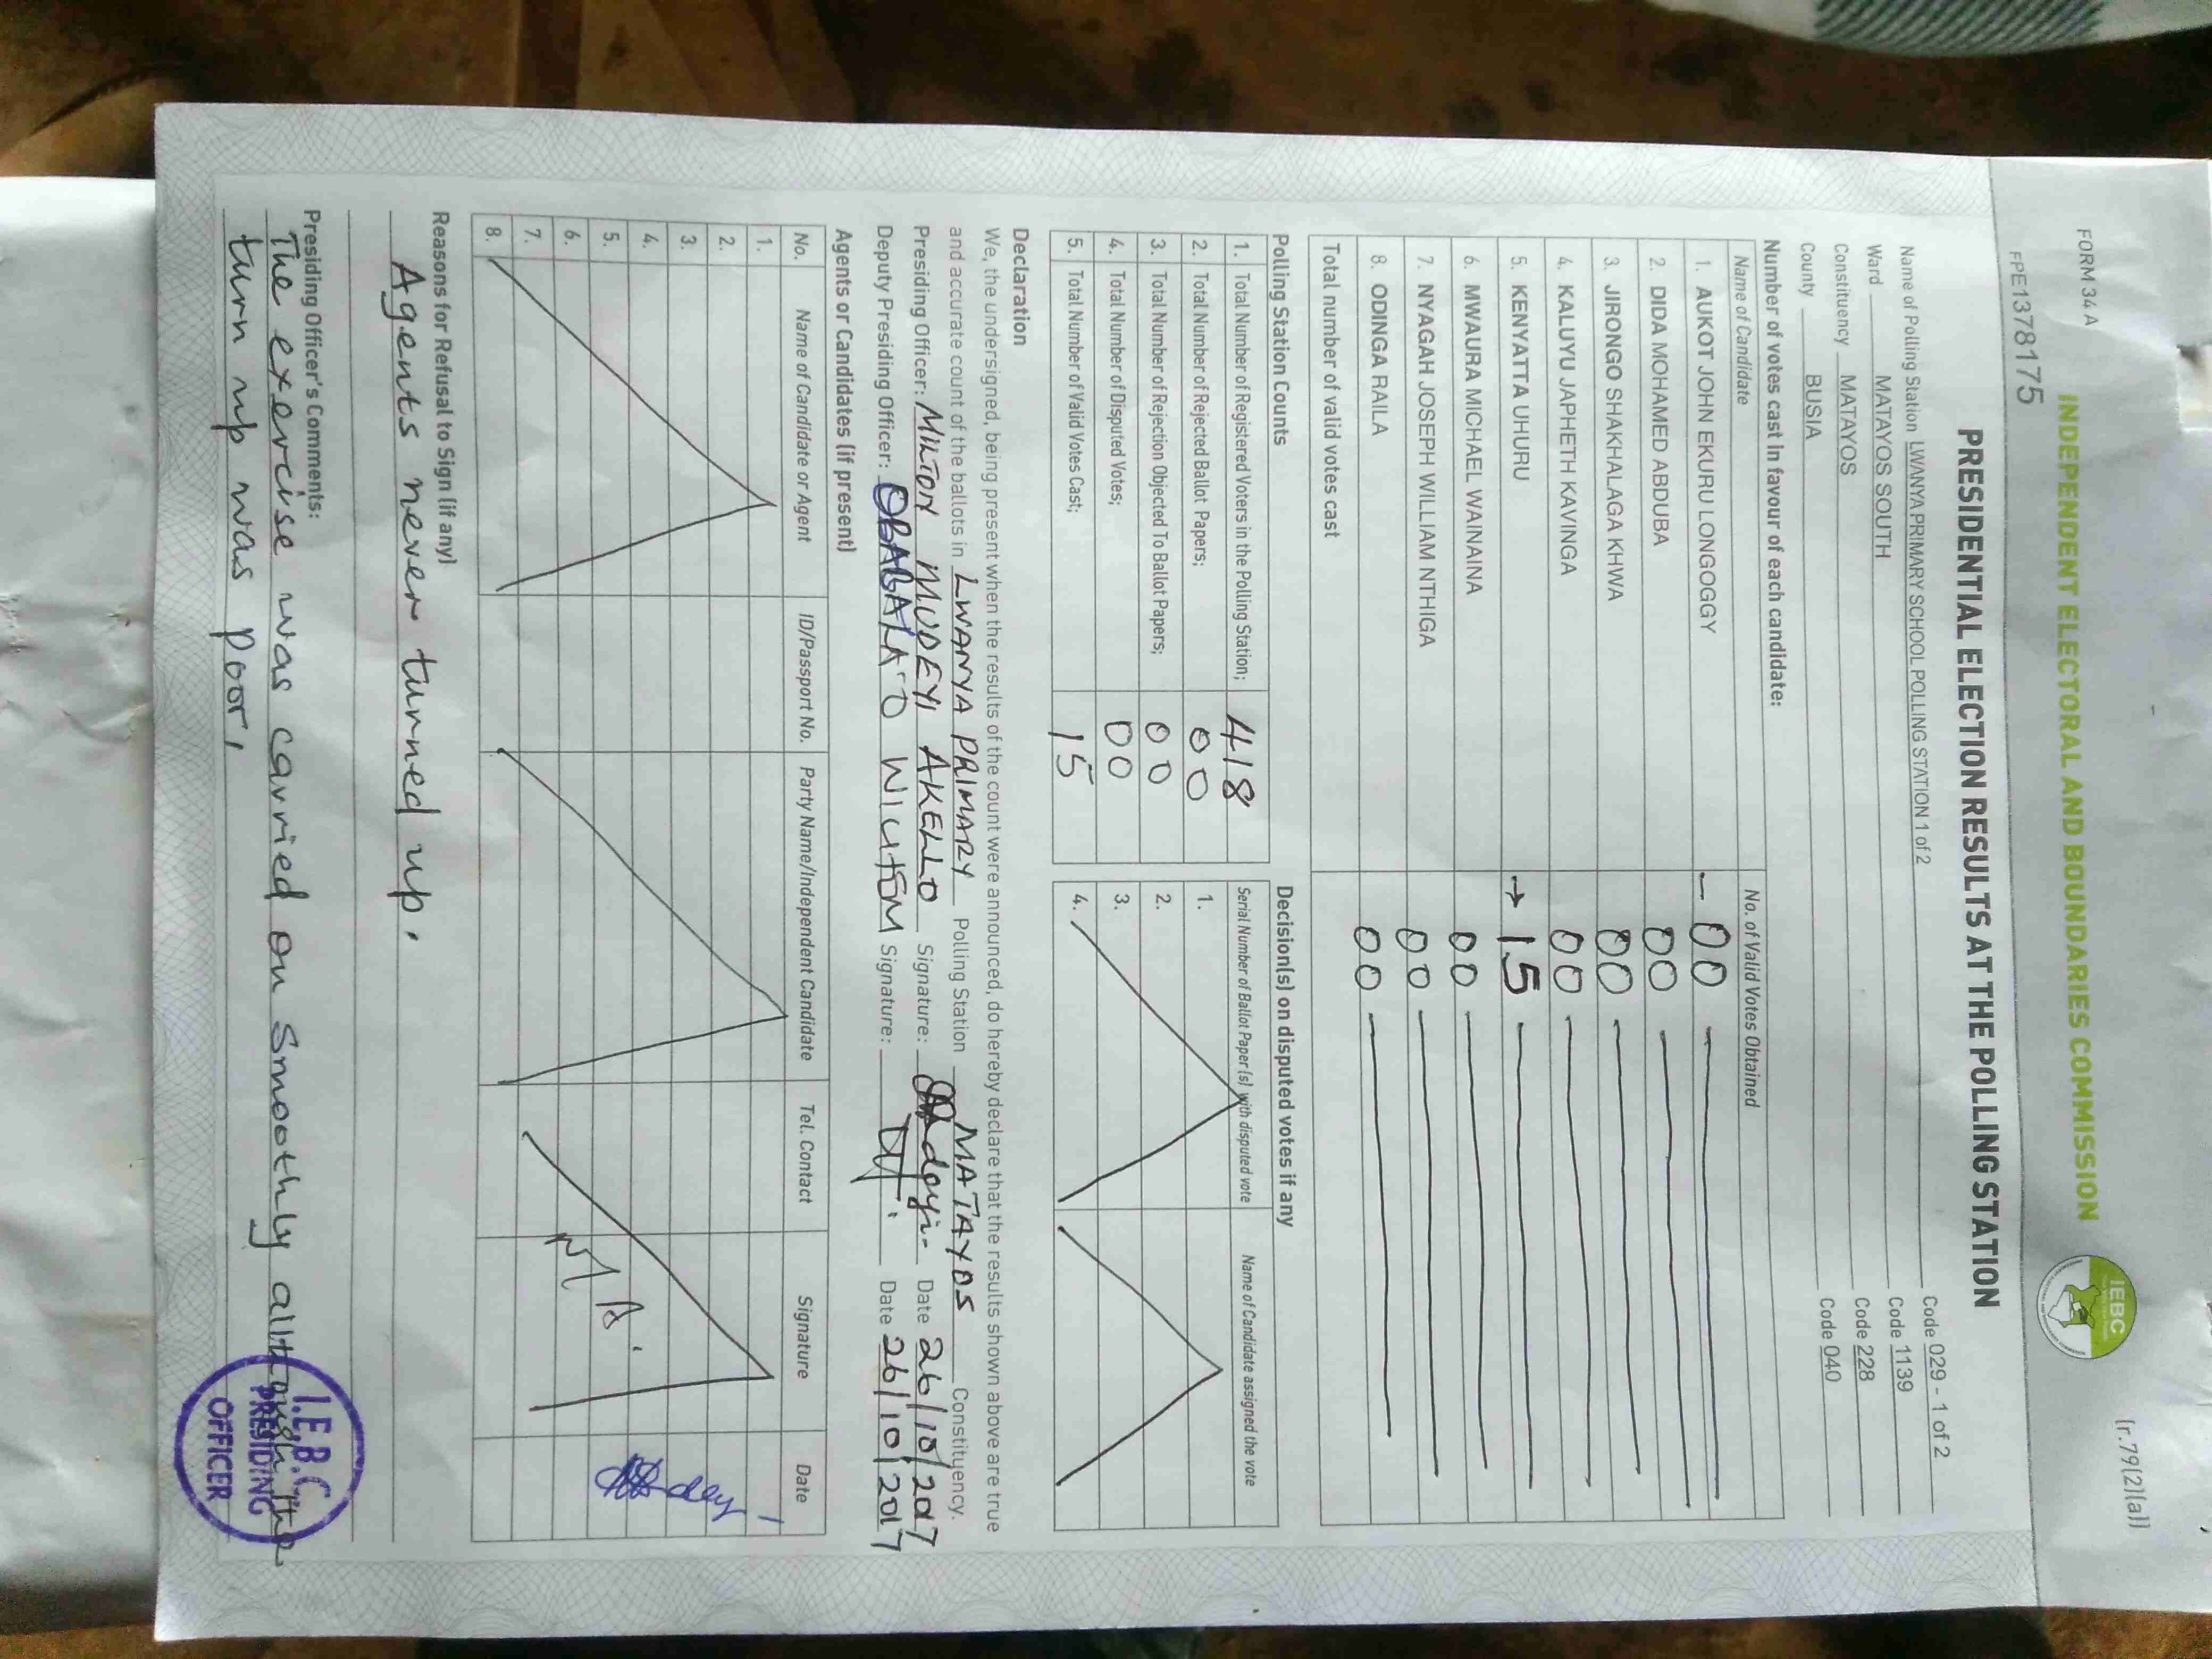 FORM 34 A
(r.79(2)(a))
INDEPENDENT ELECTORAL AND BOUNDARIES COMMISSION
IEBC
FPE1378175
PRESIDENTIAL ELECTION RESULTS AT THE POLLING STATION
Name of Polling Station LWANYA PRIMARY SCHOOL POLLING STATION 1 of 2 Code 029 - 1 of 2
Ward MATAYOS SOUTH Code 1139
Constituency MATAYOS Code 228
County BUSIA Code 040
Number of votes cast in favour of each candidate:
Name of Candidate No. of Valid Votes Obtained
1. AUKOT JOHN EKURU LONGOGGY - 00
2. DIDA MOHAMED ABDUBA 00
3. JIRONGO SHAKHALAGA KHWA 00
4. KALUYU JAPHETH KAVINGA 00
5. KENYATTA UHURU → 15
6. MWAURA MICHAEL WAINAINA 00
7. NYAGAH JOSEPH WILLIAM NTHIGA 00
8. ODINGA RAILA 00
Total number of valid votes cast
Polling Station Counts
1. Total Number of Registered Voters in the Polling Station; 418
2. Total Number of Rejected Ballot Papers; 00
3. Total Number of Rejection Objected To Ballot Papers; 00
4. Total Number of Disputed Votes; 00
5. Total Number of Valid Votes Cast; 15
Decision(s) on disputed votes if any
Serial Number of Ballot Paper(s) with disputed vote Name of Candidate assigned the vote
1.
2.
3.
4.
Declaration
We, the undersigned, being present when the results of the count were announced, do hereby declare that the results shown above are true
and accurate count of the ballots in LWANYA PRIMARY Polling Station MATAYOS Constituency.
Presiding Officer: MILTON MUDEYI AKELLO Signature: Date 26/10/2017
Deputy Presiding Officer: Signature: Date 26/10/2017
Agents or Candidates (if present)
No. Name of Candidate or Agent ID/Passport No. Party Name/Independent Candidate Tel. Contact Signature Date
1.
2.
3.
4.
5.
6.
7.
8.
Reasons for Refusal to Sign (if any)
Agents never turned up.
Presiding Officer's Comments:
The exercise was carried on smoothly although the
turn up was poor,
I.E.B.C
PRESIDING
OFFICER